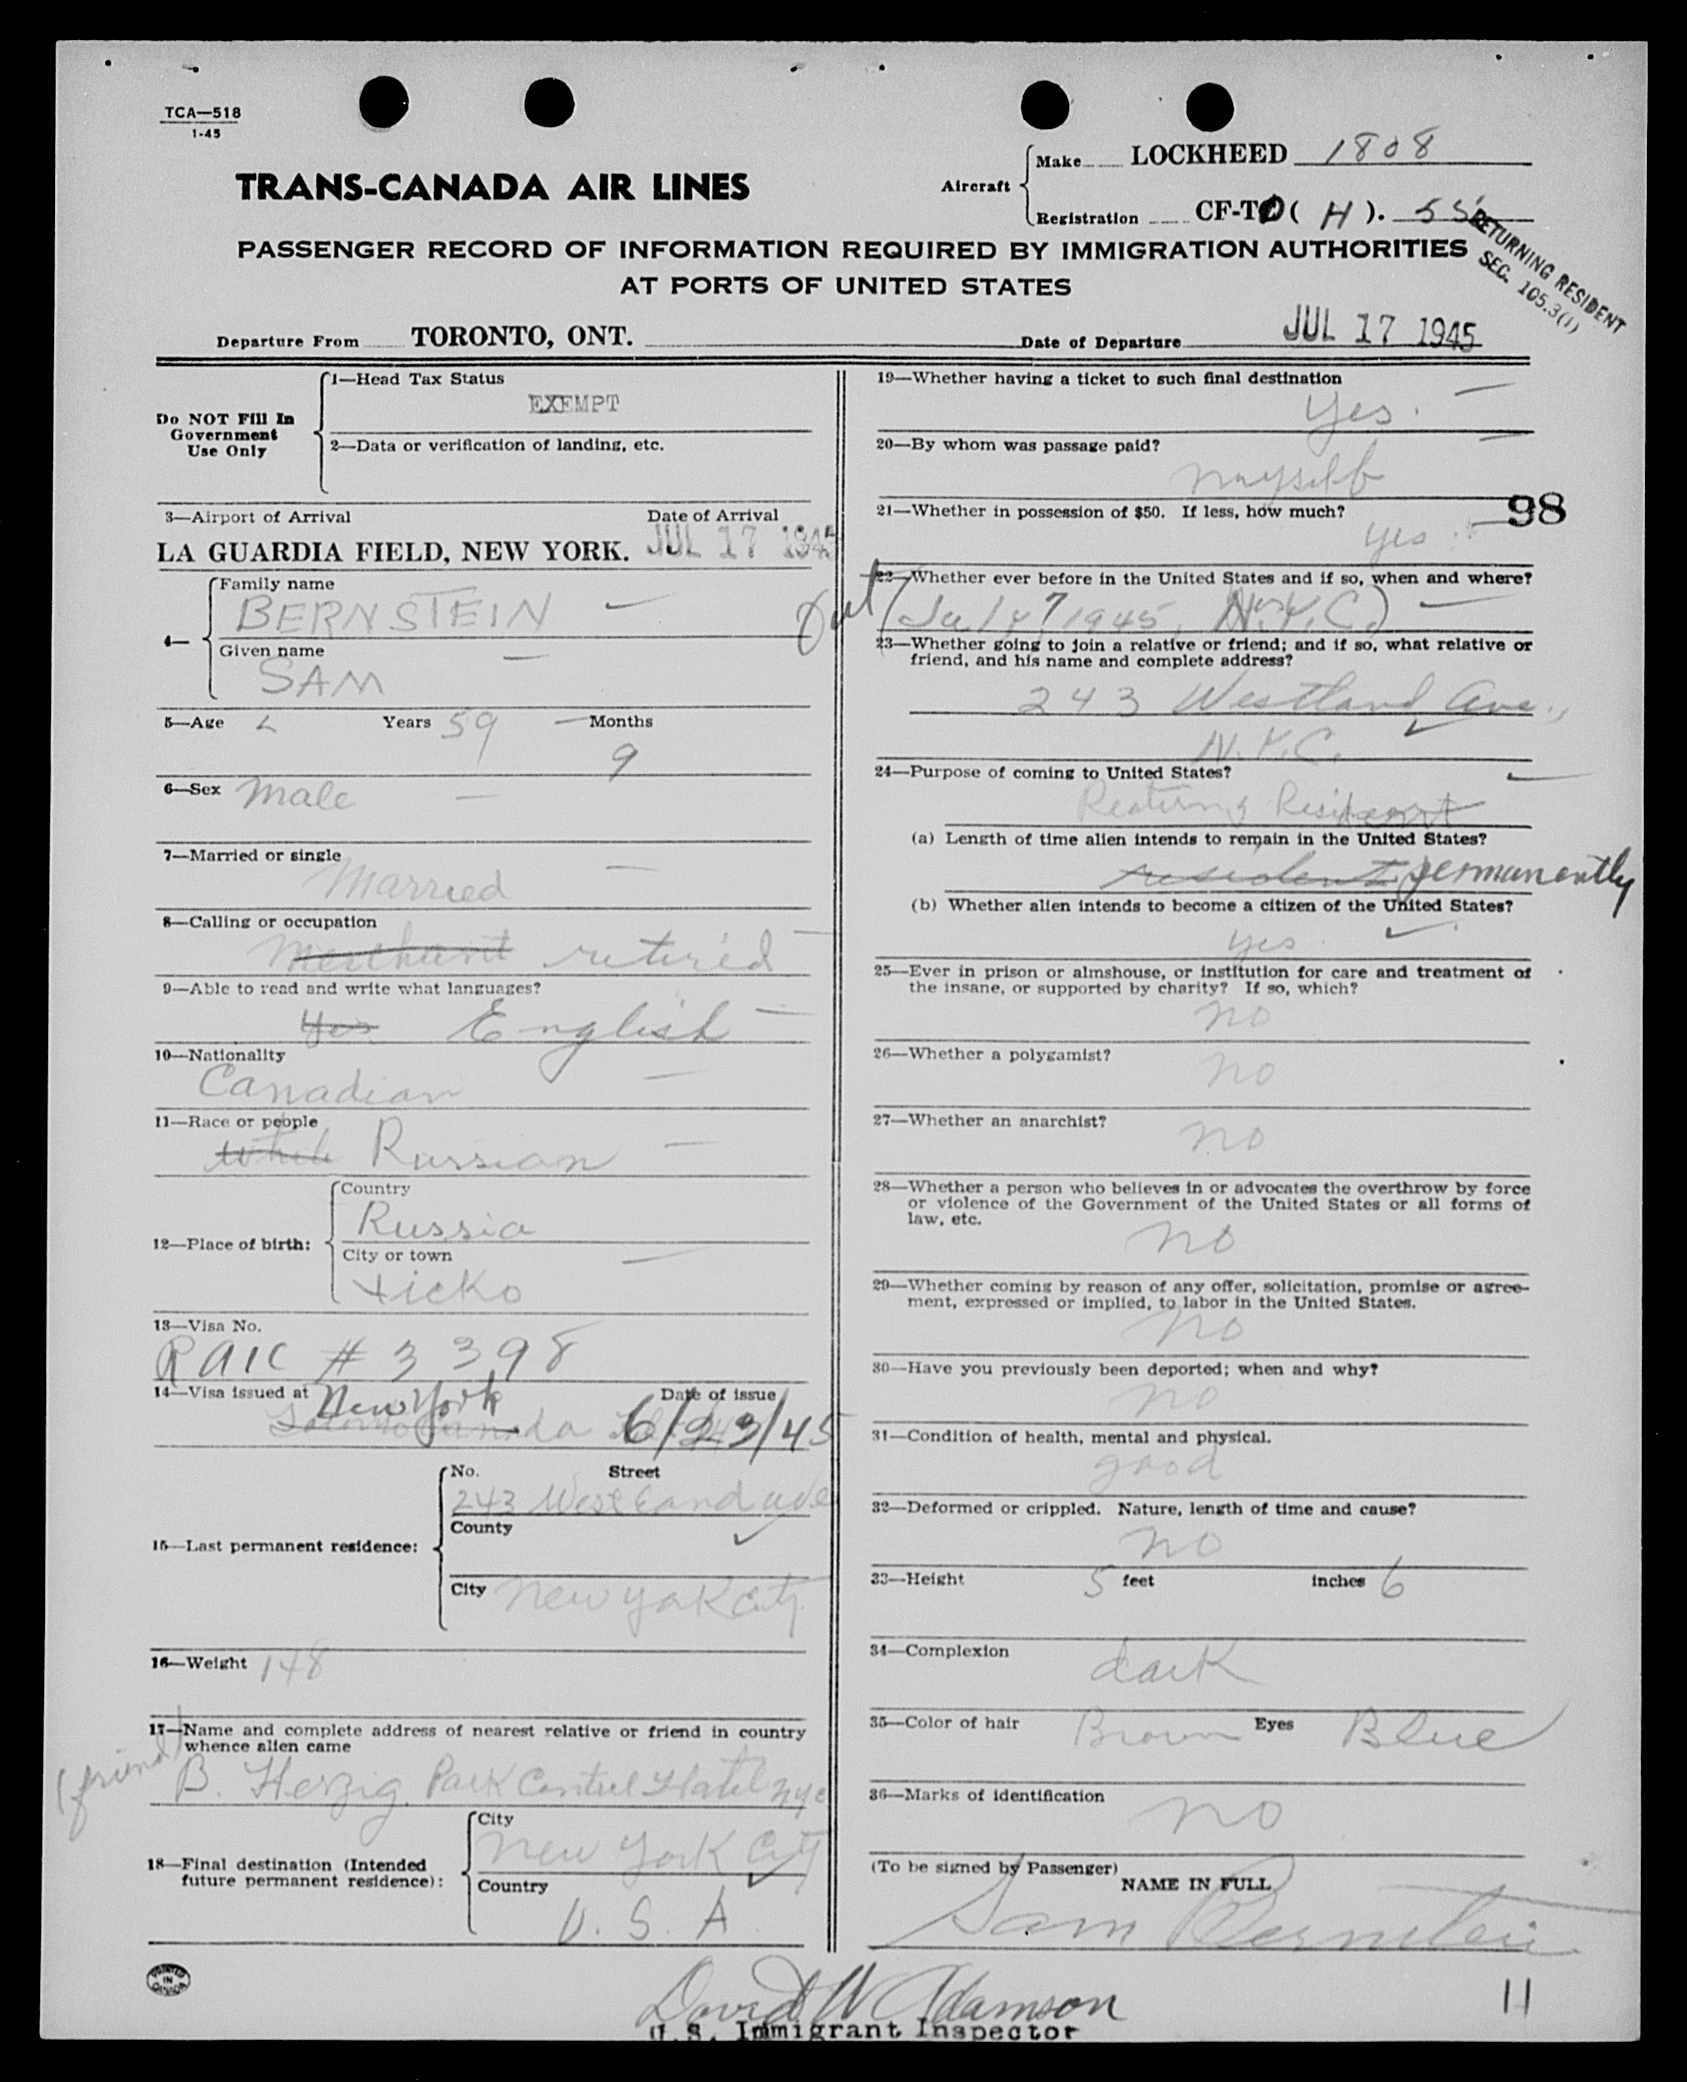 TCA—518
1-45
TRANS-CANADA AIR LINES
Aircraft
Make LOCKHEED 1808
Registration CF-TC ( H ). 55
RETURNING RESIDENT
SEC. 105.3(1)
PASSENGER RECORD OF INFORMATION REQUIRED BY IMMIGRATION AUTHORITIES
AT PORTS OF UNITED STATES
Departure From TORONTO, ONT. Date of Departure JUL 17 1945
Do NOT Fill In
Government
Use Only
1—Head Tax Status
EXEMPT
2—Data or verification of landing, etc.
3—Airport of Arrival Date of Arrival
LA GUARDIA FIELD, NEW YORK. JUL 17 1945
4—
Family name
BERNSTEIN
Given name
SAM
5—Age Years 59 Months
9
6—Sex Male
7—Married or single
Married
8—Calling or occupation
Merchant retired
9—Able to read and write what languages?
Yes English
10—Nationality
Canadian
11—Race or people
White Russian
12—Place of birth:
Country
Russia
City or town
13—Visa No.
RAIC # 3398
14—Visa issued at New York Date of issue
Canada 6/23/45
15—Last permanent residence:
No. Street
243 Westland ave
County
City New York City
16—Weight 148
17—Name and complete address of nearest relative or friend in country
whence alien came
(friend) B. Herzig Park Central Hotel NYC
18—Final destination (Intended
future permanent residence):
City
New York City
Country
U. S. A
PRINTED IN CANADA
19—Whether having a ticket to such final destination
Yes.
20—By whom was passage paid?
myself
21—Whether in possession of $50. If less, how much?
yes
98
22—Whether ever before in the United States and if so, when and where?
Out (July 7 1945, N.Y.C.)
23—Whether going to join a relative or friend; and if so, what relative or
friend, and his name and complete address?
243 Westland Ave.,
N.Y.C.
24—Purpose of coming to United States?
Returning Resident
(a) Length of time alien intends to remain in the United States?
resident permanently
(b) Whether alien intends to become a citizen of the United States?
yes
25—Ever in prison or almshouse, or institution for care and treatment of
the insane, or supported by charity? If so, which?
no
26—Whether a polygamist?
no
27—Whether an anarchist?
no
28—Whether a person who believes in or advocates the overthrow by force
or violence of the Government of the United States or all forms of
law, etc.
no
29—Whether coming by reason of any offer, solicitation, promise or agree-
ment, expressed or implied, to labor in the United States.
no
30—Have you previously been deported; when and why?
no
31—Condition of health, mental and physical.
good
32—Deformed or crippled. Nature, length of time and cause?
no
33—Height 5 feet inches 6
34—Complexion dark
35—Color of hair Brown Eyes Blue
36—Marks of identification
no
(To be signed by Passenger)
NAME IN FULL
Sam Bernstein
David W Adamson
U.S. Immigrant Inspector
11